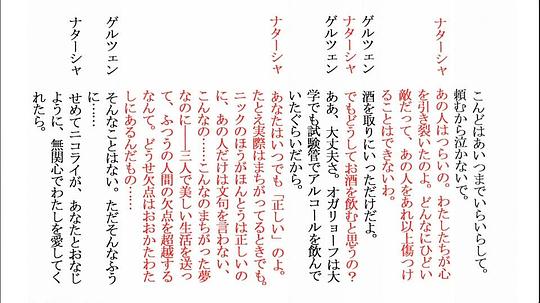 こんどはあいつまでいらいらして。
頼むから泣かないで。
ナターシャ あの人はつらいの。わたしたちが心
を引き裂いたのよ。どんなにひどい
敵だって、あの人をあれ以上傷つけ
ることはできないわ。
ゲルツェン 酒を取りにいっただけだよ。
ナターシャ でもどうしてお酒を飲むと思うの?
ゲルツェン ああ、大丈夫さ。オガリョーフは大
学でも試験管でアルコールを飲んで
いたぐらいだから。
ナターシャ あなたはいつでも「正しい」のよ。
たとえ実際はまちがってるときでも。
ニックのほうがほんとうは正しいの
に、あの人だけは文句を言わない、
こんなの……こんなのまちがった夢
なのに――三人で美しい生活を送っ
て、ふつうの人間の欠点を超越する
なんて。どうせ欠点はおおかたわた
しにあるんだもの……
ゲルツェン そんなことはない。ただそんなふう
に……
ナターシャ せめてニコライが、あなたとおなじ
ように、無関心でわたしを愛してく
れたら。